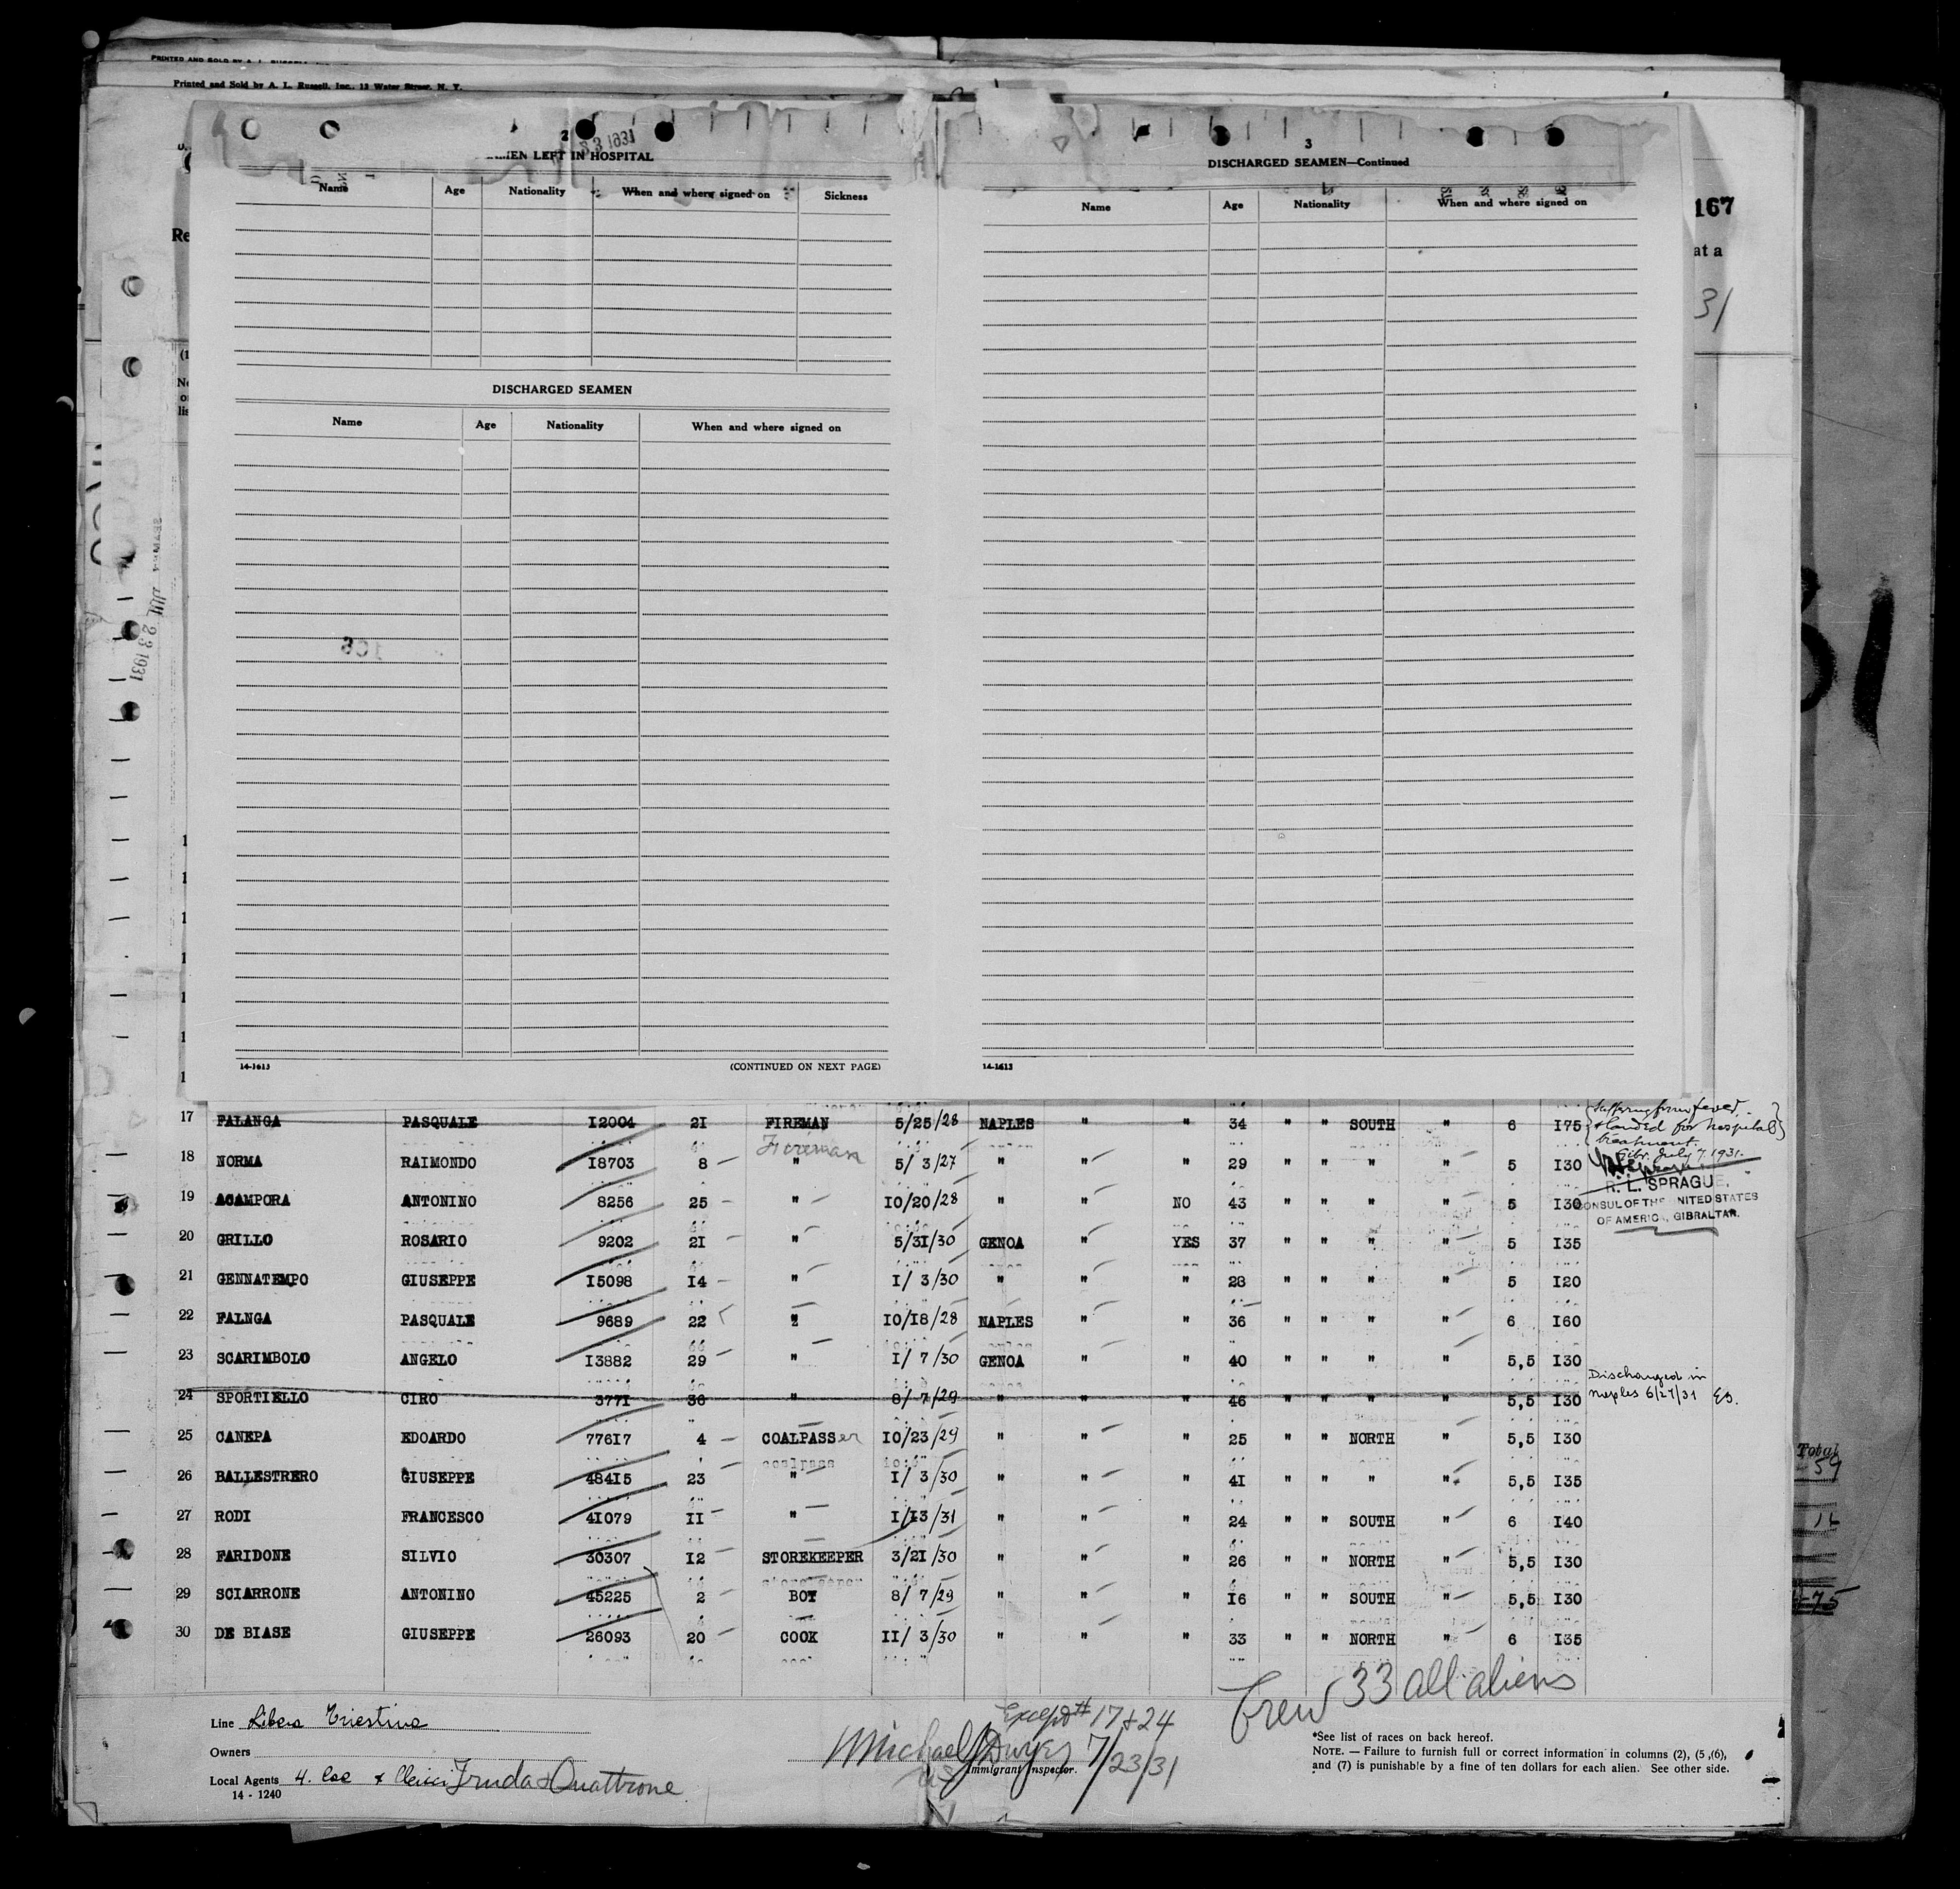 PRINTED AND SOLD BY A. L. RUSSELL
Printed and Sold by A. L. Russell, Inc., 13 Water Street, N. Y.
2
3 1931
MEN LEFT IN HOSPITAL
Name Age Nationality When and where signed on Sickness
DISCHARGED SEAMEN
Name Age Nationality When and where signed on
14-1613 (CONTINUED ON NEXT PAGE)
3
DISCHARGED SEAMEN—Continued
Name Age Nationality When and where signed on
14-1613
167
Re
at a
31
JUL 23 1931
17 FALANGA PASQUALE I2004 2I FIREMAN 5/25/28 NAPLES " " 34 " " SOUTH " 6 I75
Suffering from fever,
& landed for hospital
treatment.
Gibr. July 7. 1931.
R. L. SPRAGUE,
CONSUL OF THE UNITED STATES
OF AMERICA, GIBRALTAR.
Fireman
18 NORMA RAIMONDO I8703 8 " 5/ 3/27 " " " 29 " " " " 5 I30
19 ACAMPORA ANTONINO 8256 25 " IO/20/28 " " NO 43 " " " " 5 I30
20 GRILLO ROSARIO 9202 2I " 5/3I/30 GENOA " YES 37 " " " " 5 I35
21 GENNATEMPO GIUSEPPE I5098 I4 " I/ 3/30 " " " 28 " " " " 5 I20
22 FALNGA PASQUALE 9689 22 " IO/I8/28 NAPLES " " 36 " " " " 6 I60
23 SCARIMBOLO ANGELO I3882 29 " I/ 7/30 GENOA " " 40 " " " " 5,5 I30
24 SPORTIELLO CIRO 377I 36 " 8/ 7/29 " " " 46 " " " " 5,5 I30
Discharged in
Naples 6/27/31
25 CANEPA EDOARDO 776I7 4 COALPASSer IO/23/29 " " " 25 " " NORTH " 5,5 I30
26 BALLESTRERO GIUSEPPE 484I5 23 " I/ 3/30 " " " 4I " " " " 5,5 I35
27 RODI FRANCESCO 4I079 II " I/I3/31 " " " 24 " " SOUTH " 6 I40
28 FARIDONE SILVIO 30307 I2 STOREKEEPER 3/2I/30 " " " 26 " " NORTH " 5,5 I30
29 SCIARRONE ANTONINO 45225 2 BOY 8/ 7/29 " " " I6 " " SOUTH " 5,5 I30
30 DE BIASE GIUSEPPE 26093 20 COOK II/ 3/30 " " " 33 " " NORTH " 6 I35
Total
59
Crew 33 all aliens
Except # 17 + 24
Line Libera Triestina
Owners
Local Agents Truda & Quattrone
14 - 1240
Michael J Dwyer 7/23/31
Immigrant Inspector.
*See list of races on back hereof.
NOTE. — Failure to furnish full or correct information in columns (2), (5 ,(6),
and (7) is punishable by a fine of ten dollars for each alien. See other side.